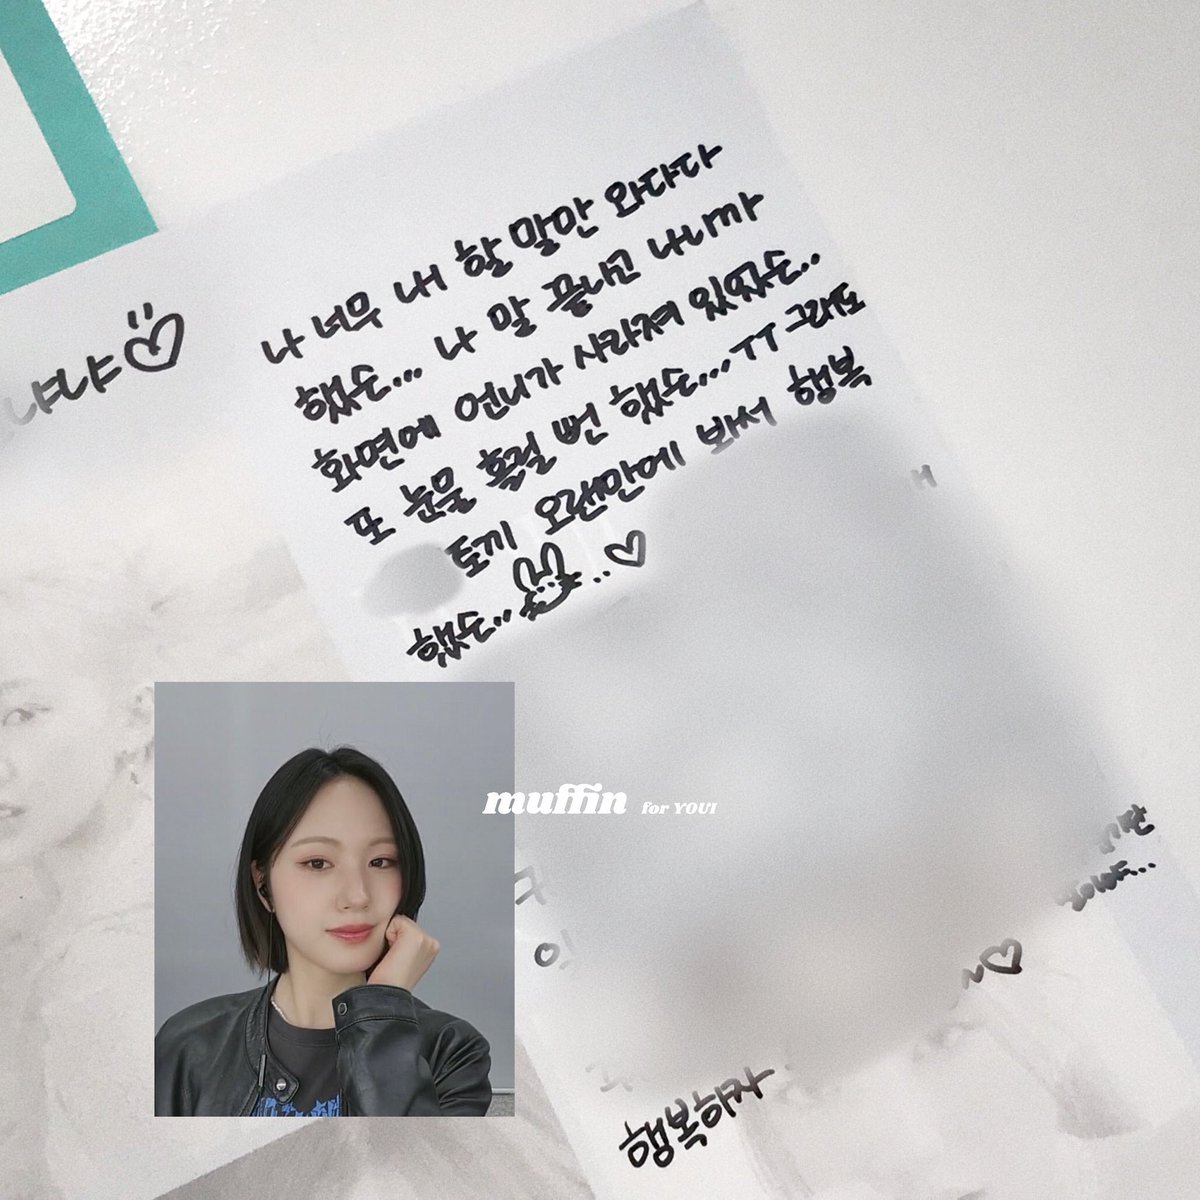 냐냐
나 너무 내 할 말만 와다다
했순... 나 말 끝나고 나니까
화면에 언니가 사라져 있었순..
또 눈물 흘릴 뻔 했순... TT 그래도
토끼 오랜만에 봐서 행복
했순.. ..♡
muffin for YOU!
행복하자